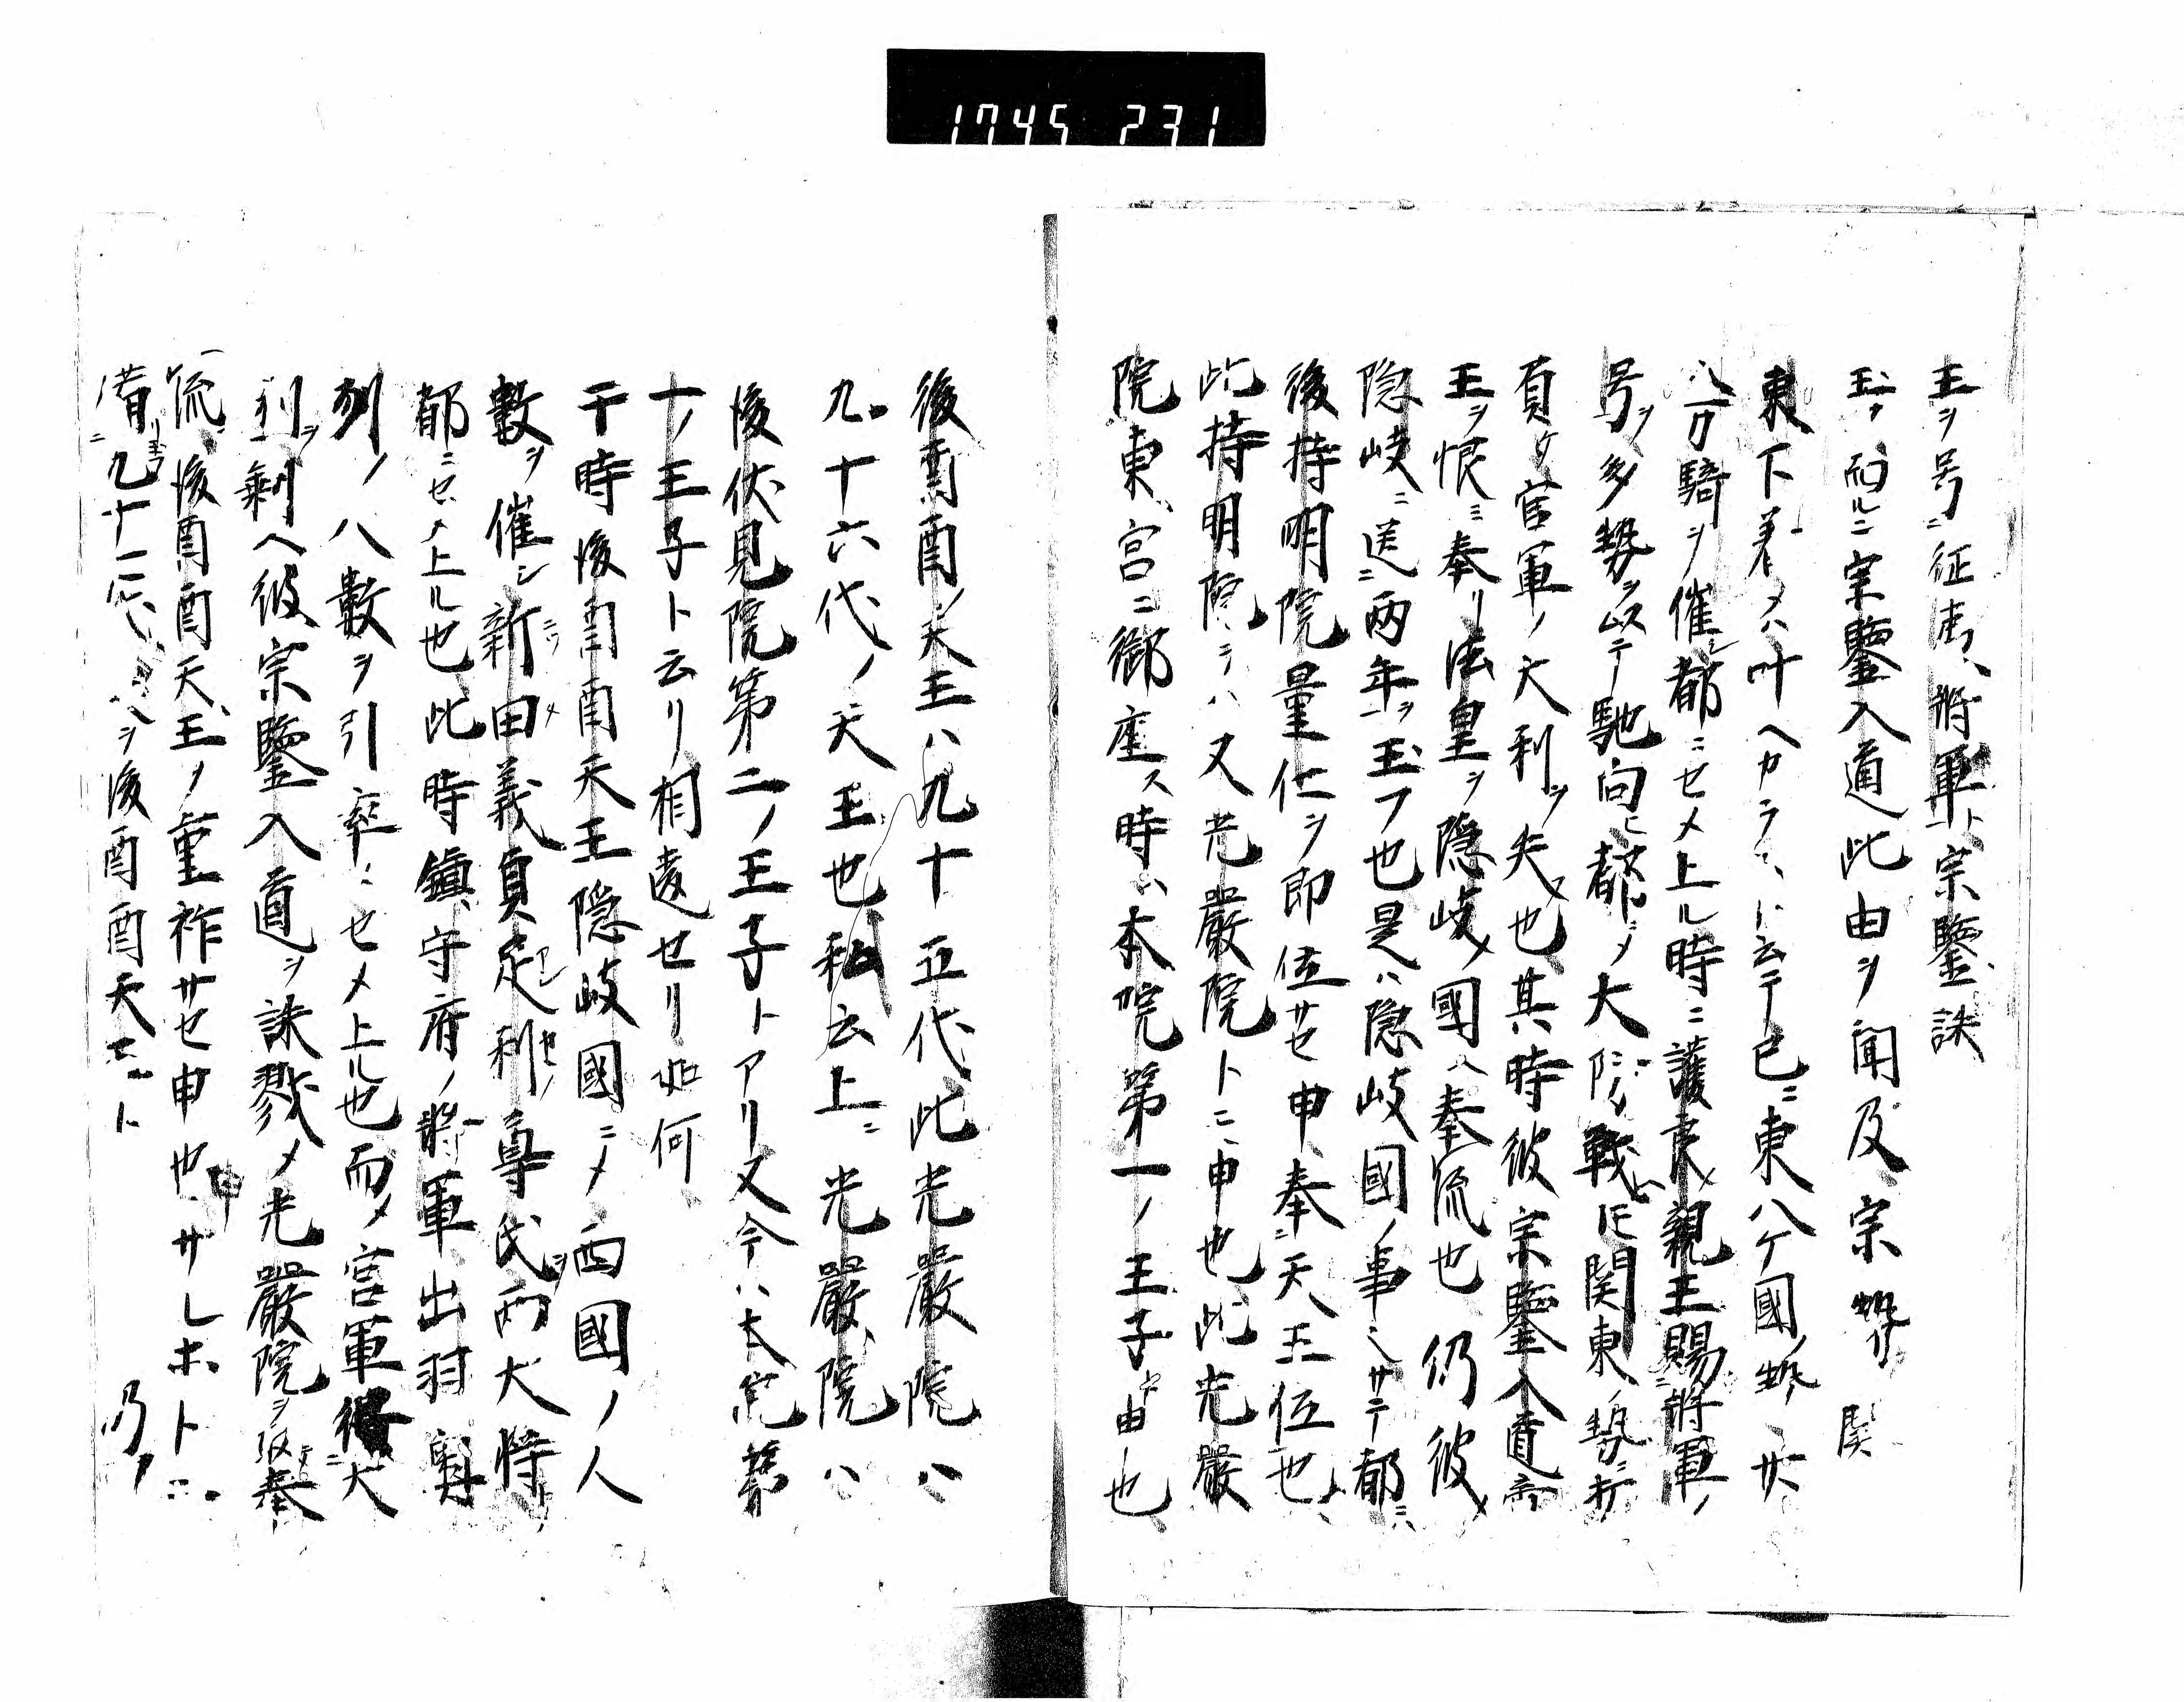 1745 231
王ヲ号ニ征夷将軍ト宗鑒誅
玉ヲ而ルニ宗鑒入道此由ヲ聞及宗 関
東下着メハ叶ヘカラスト云テ已ニ東八ケ國ノ勢廿
八万騎ヲ催シ都ニセメ上ル時ニ護良親王賜将軍ノ
号ヲ多勢ヲ以テ馳向ヒ都ニメ大ニ戦ト関東ノ勢ニ打
負ケ官軍ノ大利ヲ失也其時彼宗鑒入道帝
王ヲ恨ミ奉リ法皇ヲ隠岐ノ國ヘ奉流也仍彼
隠岐ニ送ニ両年ヲ玉フ也是ハ隠岐國ノ事ニサテ都ニハ
後持明院量仁ヲ即位サセ申奉ニ天王位也
此持明院ヲハ又光嚴院トニ申也此光嚴
院東宮ニ御座ス時ハ本院第一ノ王子ト申也
後酉酉ノ天王ハ九十五代此光嚴院ハ
九十六代ノ天王也私云上ニ光嚴院ハ
後伏見院第二ノ王子トアリ又今ハ本院第
一ノ王子ト云リ相違セリ如何
于時後酉酉天王隠岐國ニメ西國ノ人
數ヲ催シ新田義貞足利尊氏両大将
都ニセメ上ル也此時鎮守府ノ将軍出羽奥
列ノ人數ヲ引率ニセメ上ル也而メ官軍得大
利ヲ剰ヘ彼宗鑒入道ヲ誅戮メ光嚴院ヲ奉
流後酉酉天王ノ重祚サセ申也サレホトニ
備ニ九十一代ヲ後酉酉天王ト